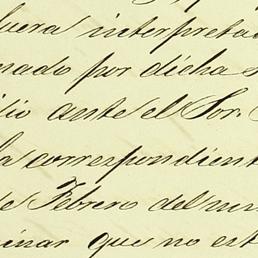 uera interpretad
nado por dicha s
lio ante el Sor.
la correspondient
de Febrero del mi
inar que no est